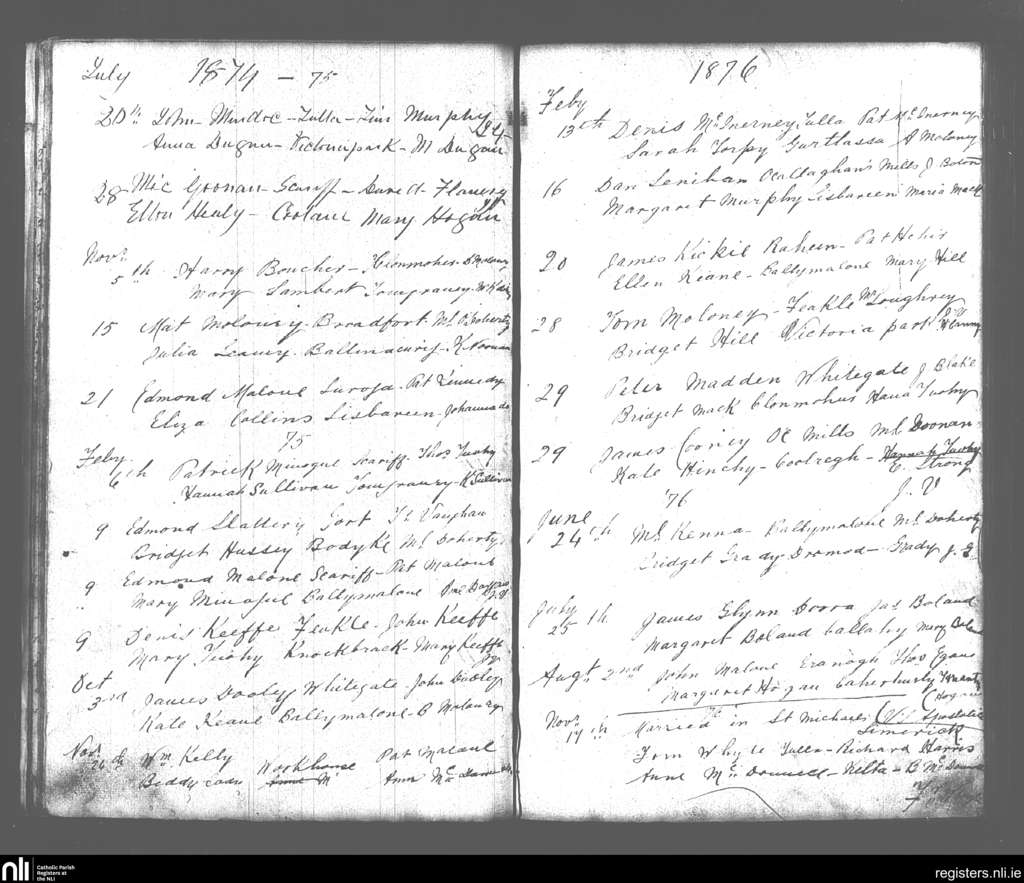 July 1874 - 75
20th John Murdoc - Tulla - Tim Murphy
Anna Dugan - Victoria park - M Dugan
28 Mic Goonan - Scariff - Flanery
Ellen Healy - Mary Hogan
Novr
5th Harry Boucher - Clonmoher - D Moloney
Mary Lambert Tomgraney -
15 Mat Moloney - Broadfort - Ml Doherty
Julia Leavy - K Noonan
21 Edmond Malone - Pat Kennedy
Eliza Collins Lisbareen - Johanna do
75
Feby
6th Patrick Minogue Scariff - Thos Tuohy
Hannah Sullivan Tomgraney - K Sullivan
9 Edmond Slattery Gort - Vaughan
Bridget Hussey Bodyke Ml Doherty
9 Edmond Malone Scariff - Pat Malone
Mary Minogue Ballymalone
9 Denis Keeffe Feakle - John Keeffe
Mary Tuohy Knockbrack - Mary Keeffe
Oct
3rd James Dooley Whitegate - John Dooley
Kate Keane Ballymalone - B Moloney
Novr
26th Wm Kelly Workhouse Pat Malone
Biddy
1876
Feby
13th Denis McInerney Tulla Pat McInerney
Sarah Torpy Gurtlassa A Moloney
16 Dan Lenihan OCallaghans Mills J Boland
Margaret Murphy Lisbareen Maria Mack
20 James Kickie Raheen - Pat Hehir
Ellen Keane - Ballymalone Mary Hill
28 Tom Moloney - Feakle McLoughrey
Bridget Hill Victoria park
29 Peter Madden Whitegate J Blake
Bridget Mack Clonmoher Hana Tuohy
29 James Cooney OC Mills Ml Doonan
Kate Hinchy - Coolregh - Hannah Tuohy
E. Strong
'76 J. V
June
24th Ml Kenna - Ballymalone Ml Doherty
Bridget Grady Dromod - Grady J. G
July
25th James Glynn Doora Jas Boland
Margaret Boland Callahy Mary Boland
Augt 2nd John Malone Eranagh Thos Egan
Margaret Hogan Caherhurly
Hogan
Novr
17th Married in St Michaels
Limerick
Tom Whyte Tulla - Richard Harris
Anne McDonnell - Kelta - B McDonnell
nli Catholic Parish
Registers at
the NLI
registers.nli.ie